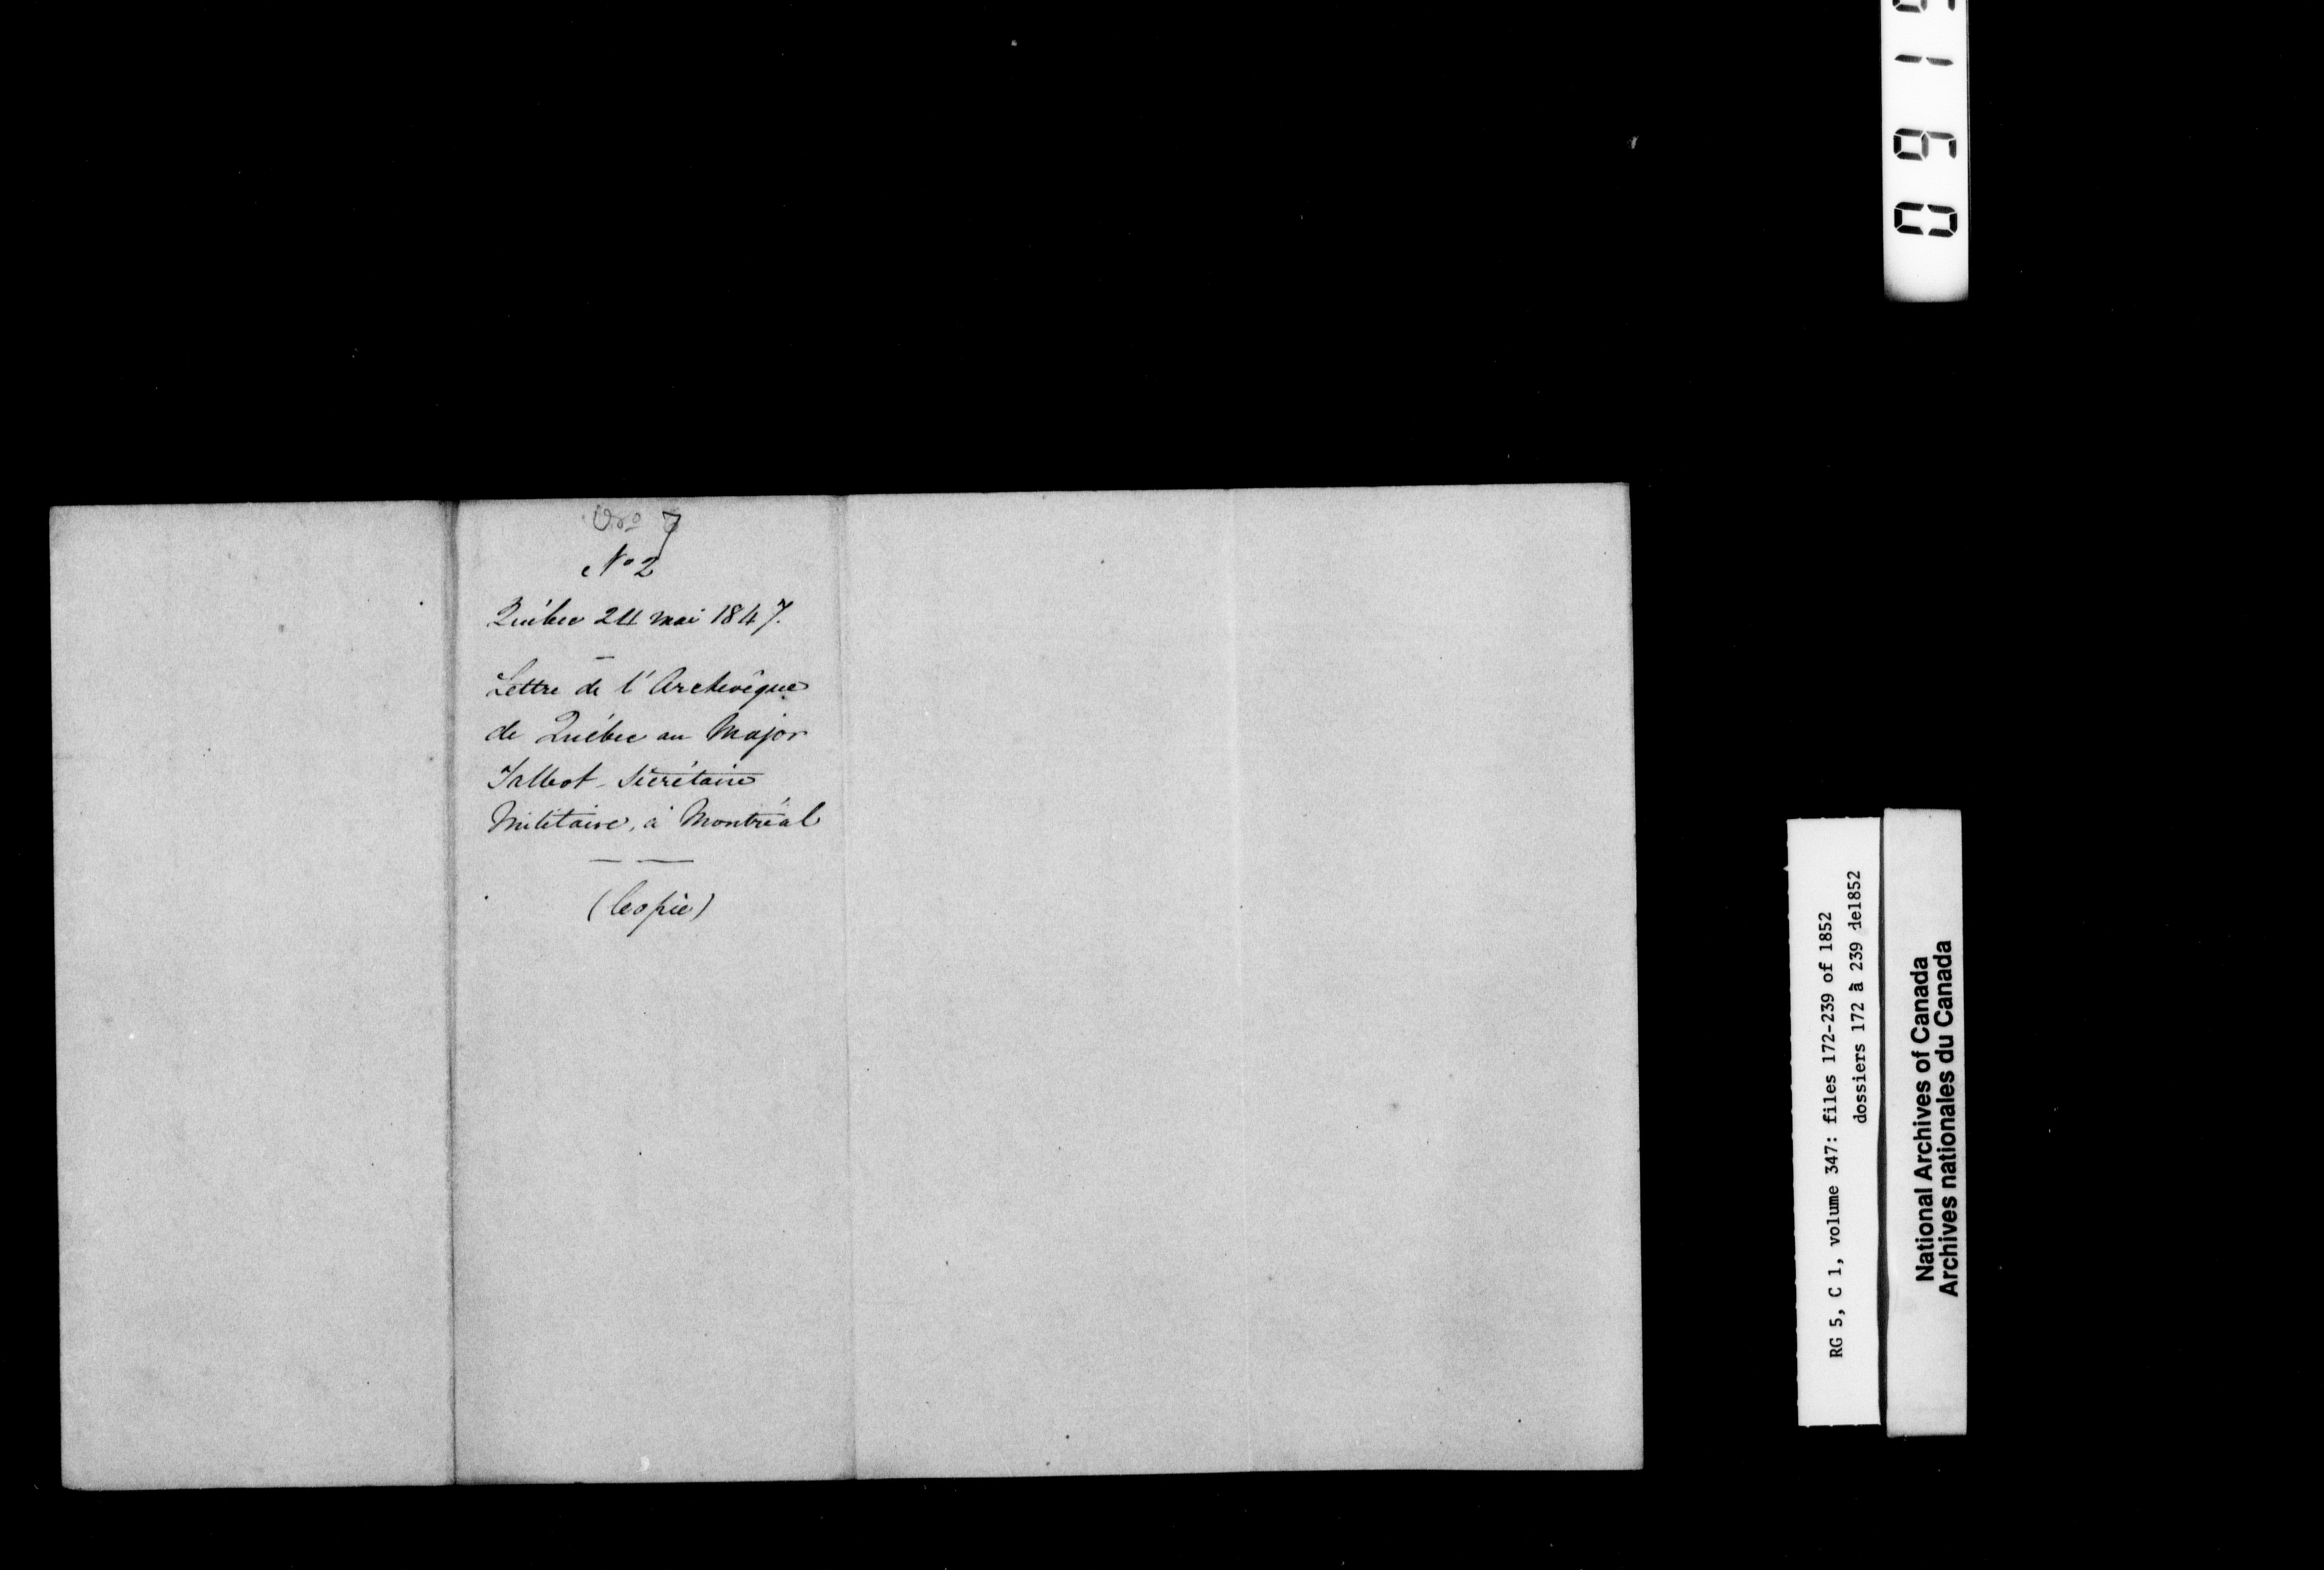 No 7
No 2
Québec 24 mai 1847.
Lettre de l'Archevêque
de Québec au Major
Talbot - Secrétaire
Militaire, à Montréal
(Copie)
RG 5, C 1, volume 347: files 172-239 of 1852
dossiers 172 à 239 de1852
National Archives of Canada
Archives nationales du Canada